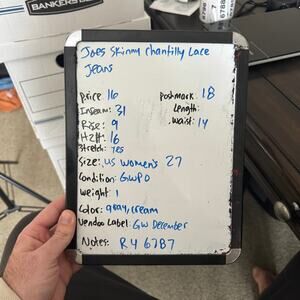 BANKERS BOX
Joes Skinny Chantilly Lace
Jeans
Price 16
Poshmark: 18
Inseam: 31
Length:
Rise: 9
Waist: 14
Hips: 16
Stretch: Yes
Size: US women's 27
Condition: GWPO
Weight 1
Color: gray, cream
Vendoo Label: GW December
Notes: R4 67B7